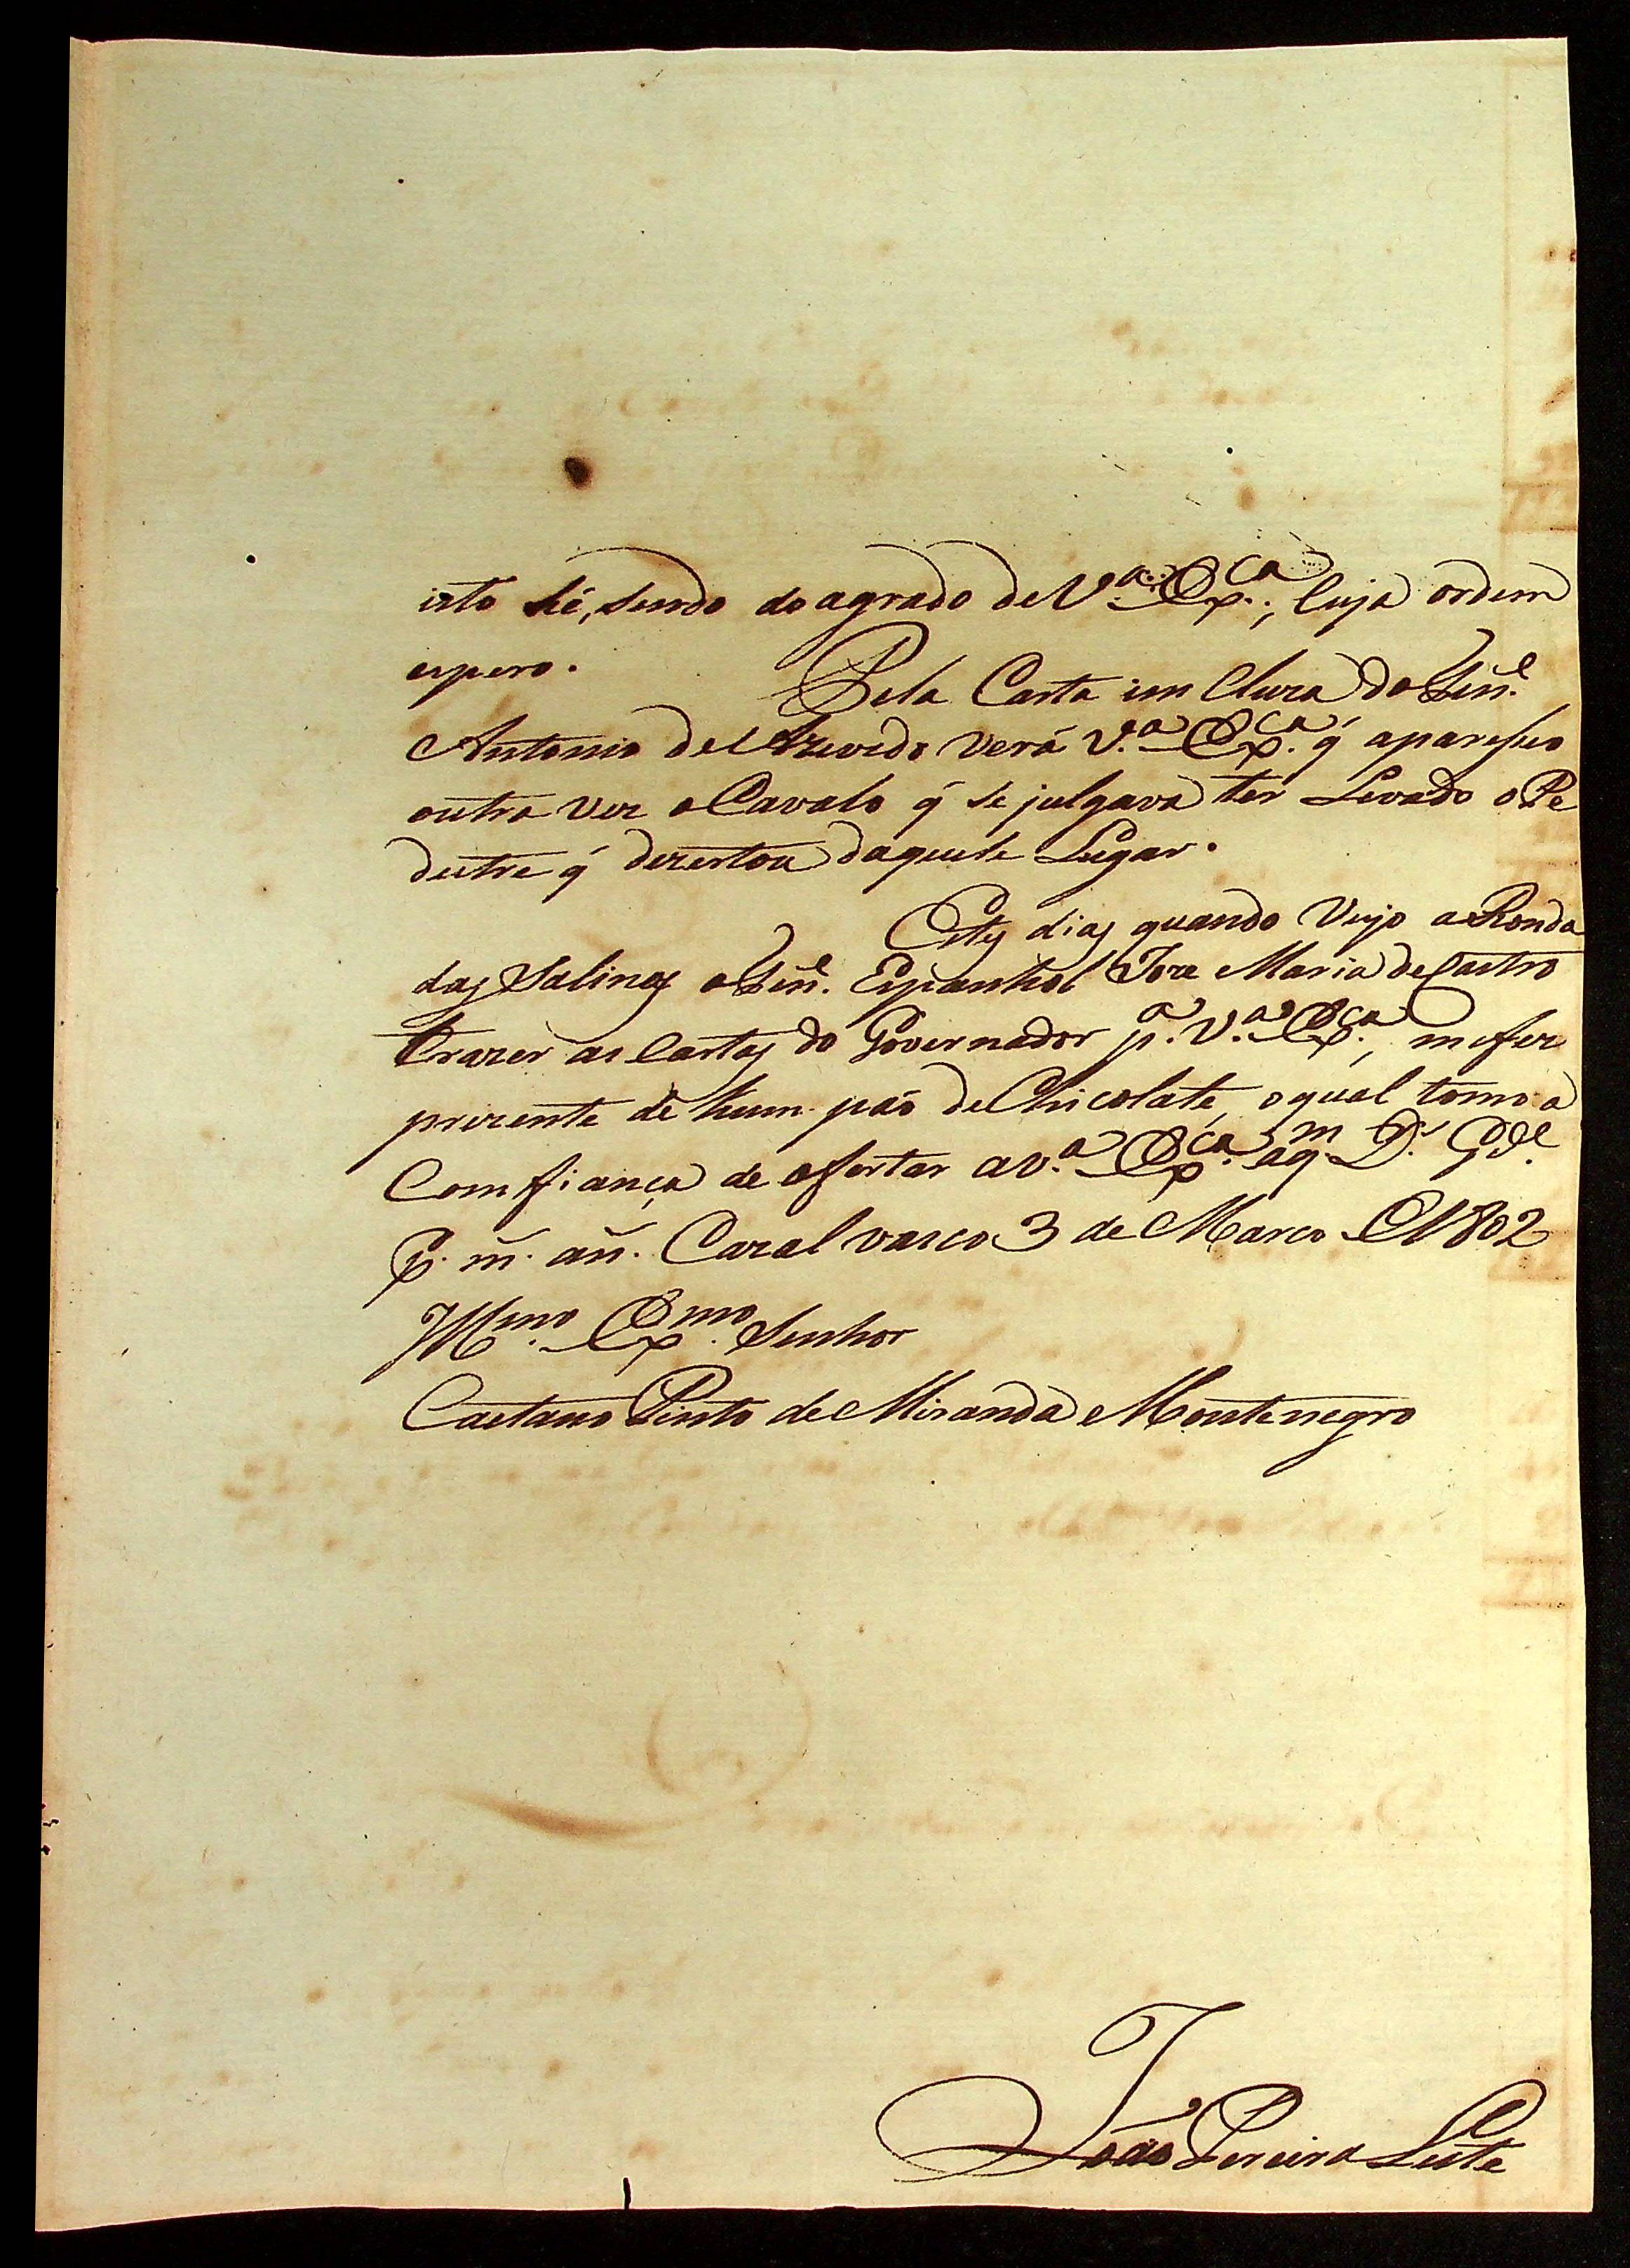 isto hé, sendo do agrado de V.ª Ex.ca, cuja ordem
espero.
Pela Carta im cluza do Ten.e
Antonio de Azevedo verá V.ª Ex.ca q̃ apareseo
outra vez o Cavalo q̃ se julgava ter Levado o Pe
destre q̃ dezertou daquele Lugar.
Estes dias quando Veyo a Ronda
das Salinas o Ten.e Espanhol Joze Maria de Castro
trazer as Cartas do Governador p.ª V.ª Ex.ca, me fez
prezente de hum pão de Chicolate, o qual tomo a
Comfiança de ofertar a V.ª Ex.ca aq.m D.s G.de
p. m. an. Cazal vasco 3 de Marco de 1802
Ill.mo Ex.mo Senhor
Caetano Pinto de Miranda Montenegro
João Pereira Leite